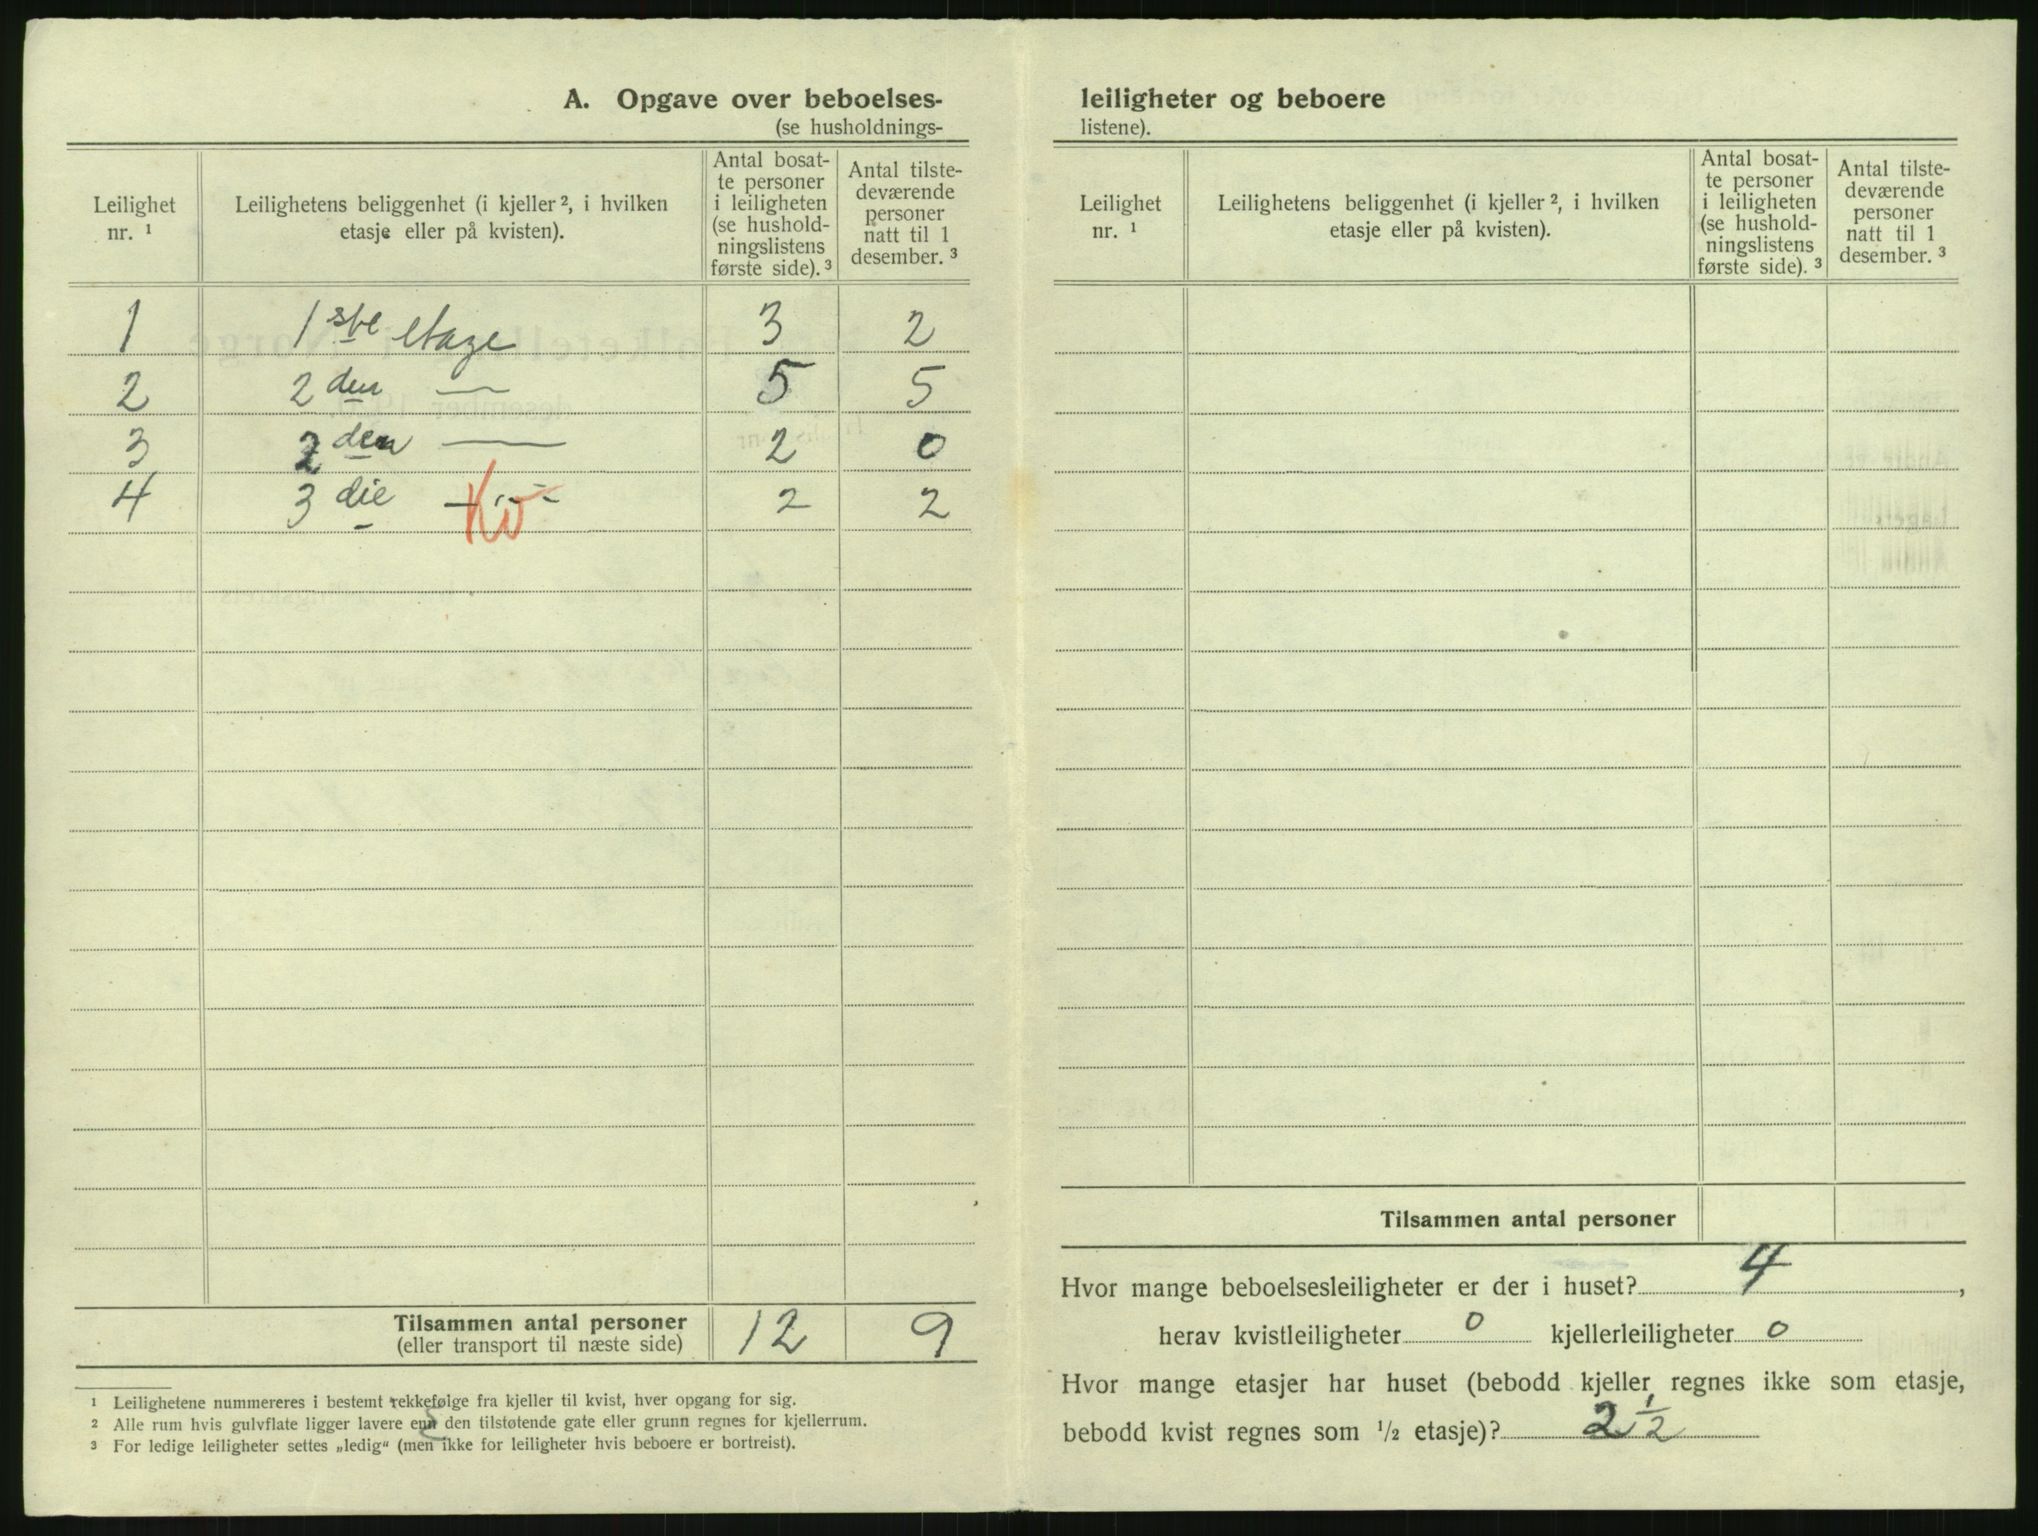 A. Opgave over beboelses-
(se husholdnings-
Leilighet
nr. ¹
Leilighetens beliggenhet (i kjeller ², i hvilken
etasje eller på kvisten).
Antal bosat-
te personer
i leiligheten
(se hushold-
ningslistens
første side). ³
Antal tilste-
deværende
personer
natt til 1
desember. ³
1 1ste etage 3 2
2 2den — 5 5
3 2den — 2 0
4 3die — Kv 2 2
Tilsammen antal personer 12 9
(eller transport til næste side)
¹ Leilighetene nummereres i bestemt rekkefølge fra kjeller til kvist, hver opgang for sig.
² Alle rum hvis gulvflate ligger lavere enn den tilstøtende gate eller grunn regnes for kjellerrum.
³ For ledige leiligheter settes „ledig“ (men ikke for leiligheter hvis beboere er bortreist).
leiligheter og beboere
listene).
Leilighet
nr. ¹
Leilighetens beliggenhet (i kjeller ², i hvilken
etasje eller på kvisten).
Antal bosat-
te personer
i leiligheten
(se hushold-
ningslistens
første side). ³
Antal tilste-
deværende
personer
natt til 1
desember. ³
Tilsammen antal personer
Hvor mange beboelsesleiligheter er der i huset? 4 ,
herav kvistleiligheter 0 kjellerleiligheter 0
Hvor mange etasjer har huset (bebodd kjeller regnes ikke som etasje,
bebodd kvist regnes som ½ etasje)? 2 ½